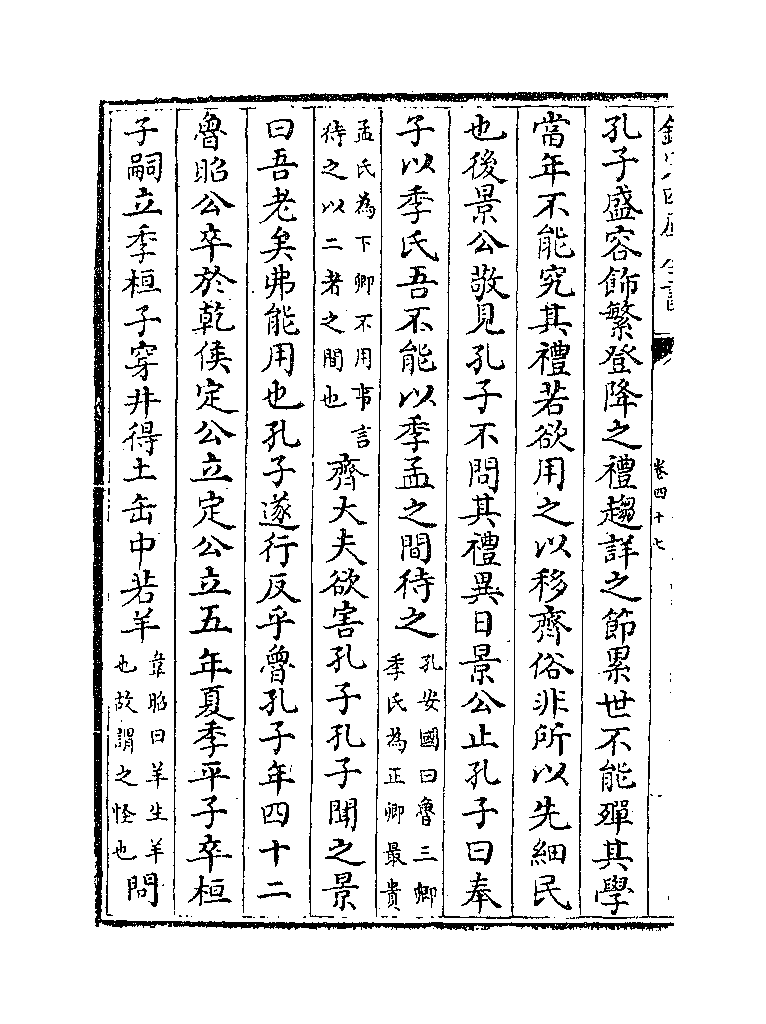 欽定四庫全書
卷四十七
孔子盛容飾繁登降之禮趨詳之節累世不能殫其學
當年不能究其禮若欲用之以移齊俗非所以先細民
也後景公敬見孔子不問其禮異日景公止孔子曰奉
子以季氏吾不能以季孟之間待之
孔安國曰魯三卿
季氏為正卿最貴
孟氏為下卿不用事言
待之以二者之間也
齊大夫欲害孔子孔子聞之景
曰吾老矣弗能用也孔子遂行反乎魯孔子年四十二
魯昭公卒於乾侯定公立定公立五年夏季平子卒桓
子嗣立季桓子穿井得土缶中若羊
韋昭曰羊生羊
也故謂之怪也
問